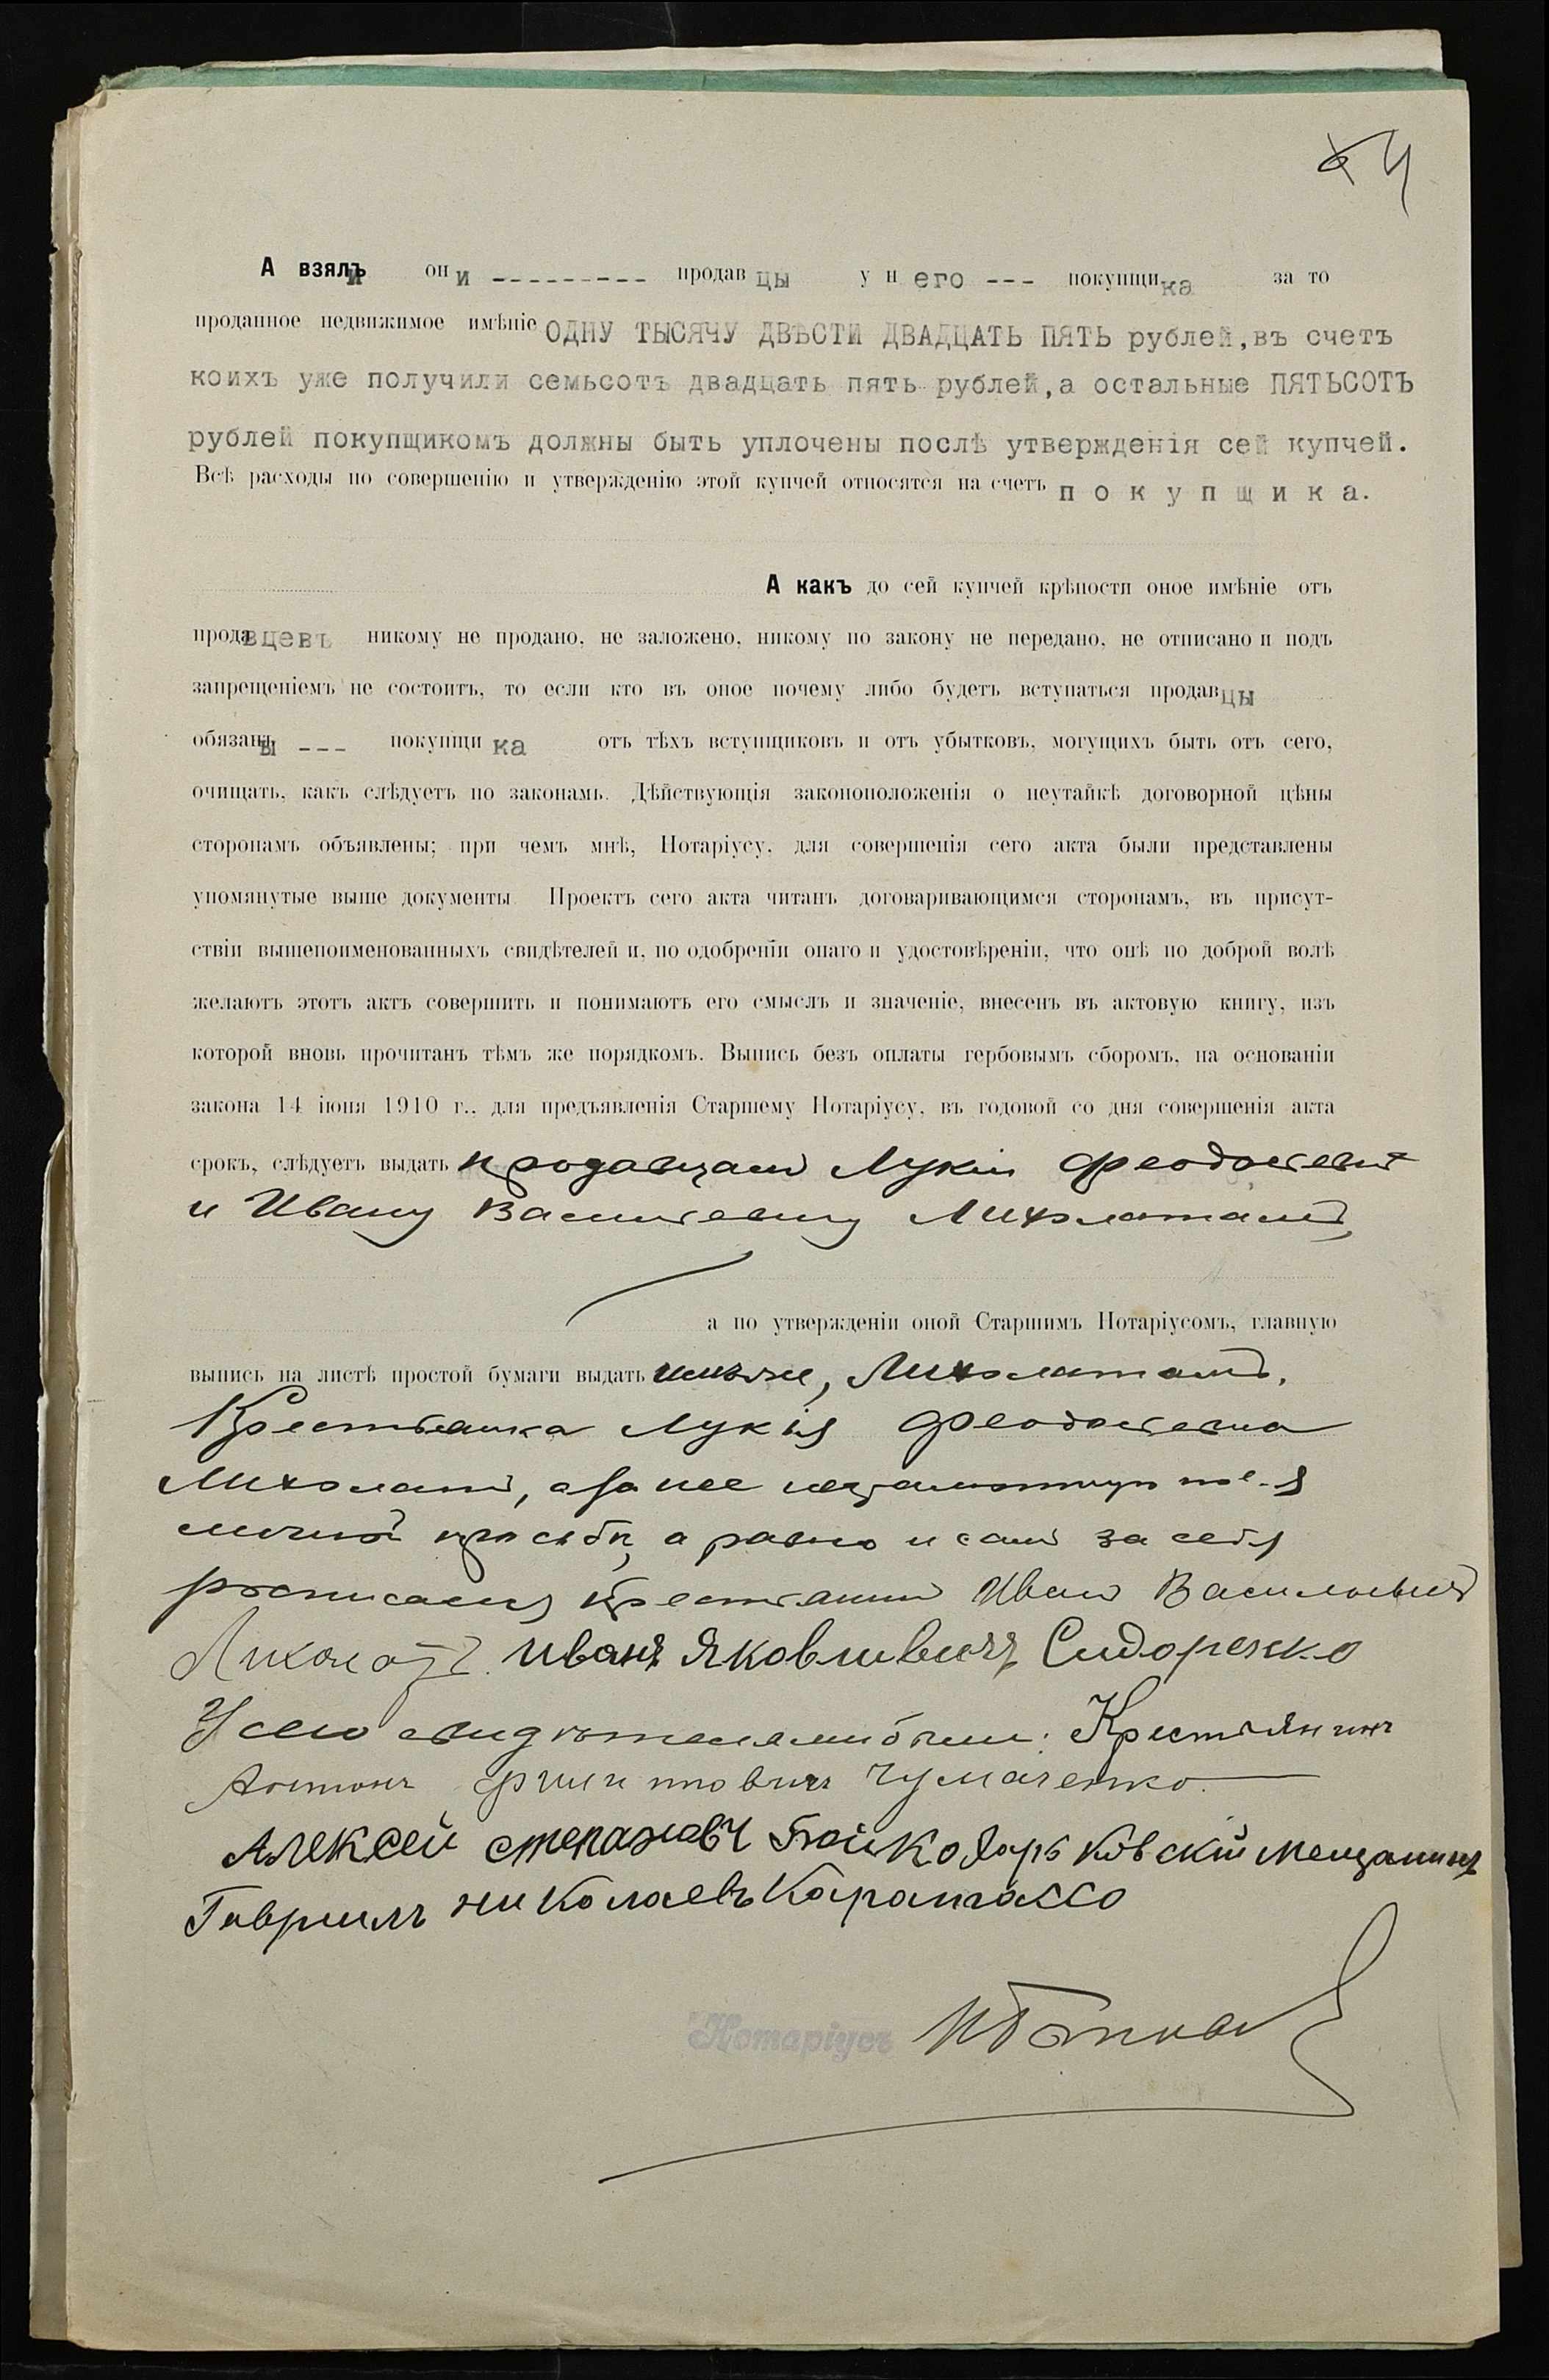 4
А взяли они --------- продавцы у него --- покупщика за то
проданное недвижимое имѣніе ОДНУ ТЫСЯЧУ ДВѢСТИ ДВАДЦАТЬ ПЯТЬ рублей, въ счетъ
коихъ уже получили семьсотъ двадцать пять рублей, а остальные ПЯТЬСОТЪ
рублей покупщикомъ должны быть уплочены послѣ утвержденія сей купчей.
Всѣ расходы по совершенію и утвержденію этой купчей относятся на счетъ покупщика.
А какъ до сей купчей крѣпости оное имѣніе отъ
продавцевъ никому не продано, не заложено, никому по закону не передано, не отписано и подъ
запрещеніемъ не состоитъ, то если кто въ оное почему либо будетъ вступаться продавцы
обязаны --- покупщика отъ тѣхъ вступщиковъ и отъ убытковъ, могущихъ быть отъ сего,
очищать, какъ слѣдуетъ по законамъ. Дѣйствующія законоположенія о неутайкѣ договорной цѣны
сторонамъ объявлены; при чемъ мнѣ, Нотаріусу, для совершенія сего акта были представлены
упомянутые выше документы. Проектъ сего акта читанъ договаривающимся сторонамъ, въ присут-
ствіи вышепоименованныхъ свидѣтелей и, по одобреніи онаго и удостовѣреніи, что онѣ по доброй волѣ
желаютъ этотъ актъ совершить и понимаютъ его смыслъ и значеніе, внесенъ въ актовую книгу, изъ
которой вновь прочитанъ тѣмъ же порядкомъ. Выпись безъ оплаты гербовымъ сборомъ, на основаніи
закона 14 іюня 1910 г., для предъявленія Старшему Нотаріусу, въ годовой со дня совершенія акта
срокъ, слѣдуетъ выдать продавцамъ Лукіи Феодосіевнѣ
и Ивану Васильевичу Лихолатамъ,
а по утвержденіи оной Старшимъ Нотаріусомъ, главную
выпись на листѣ простой бумаги выдать имъ же, Лихолатамъ.
Крестьянка Лукія Феодосіевна
Лихолатъ, а за нее неграмотную по ея
личной просьбѣ, а равно и самъ за себя
росписался крестьянинъ Иванъ Васильевичъ
Лихолатъ. Иванъ Яковливичъ Сидоренко
У сего свидѣтелями были: Крестьянинъ
Антонъ Филиповичъ Чумаченко.
Алексей степановъч Бойко Харьковскій мещанинъ
Гавриилъ николаевъ Каратассо
Нотаріусъ